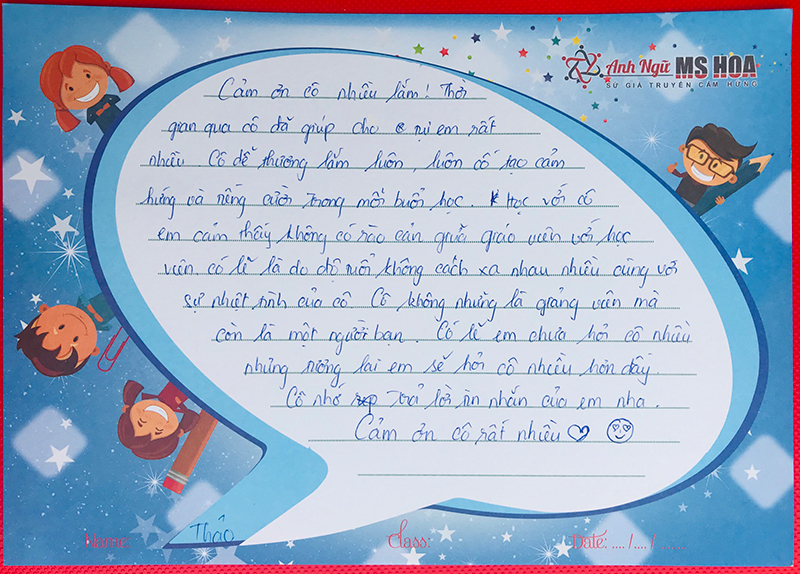 Anh Ngữ MS HOA
SỨ GIẢ TRUYỀN CẢM HỨNG
Cảm ơn cô nhiều lắm! Thời
gian qua cô đã giúp cho tụi em rất
nhiều. Cô dễ thương lắm luôn, luôn có tạo cảm
hứng và tiếng cười trong mỗi buổi học. Học với cô
em cảm thấy không có rào cản giữa giáo viên với học
viên có lẽ là do độ tuổi không cách xa nhau nhiều cùng với
sự nhiệt tình của cô. Cô không những là giảng viên mà
còn là một người bạn. Có lẽ em chưa hỏi cô nhiều
nhưng tương lai em sẽ hỏi cô nhiều hơn đấy.
Cô nhớ trả lời tin nhắn của em nha.
Cảm ơn cô rất nhiều
Name: Thảo Class: Date: ..../..../......